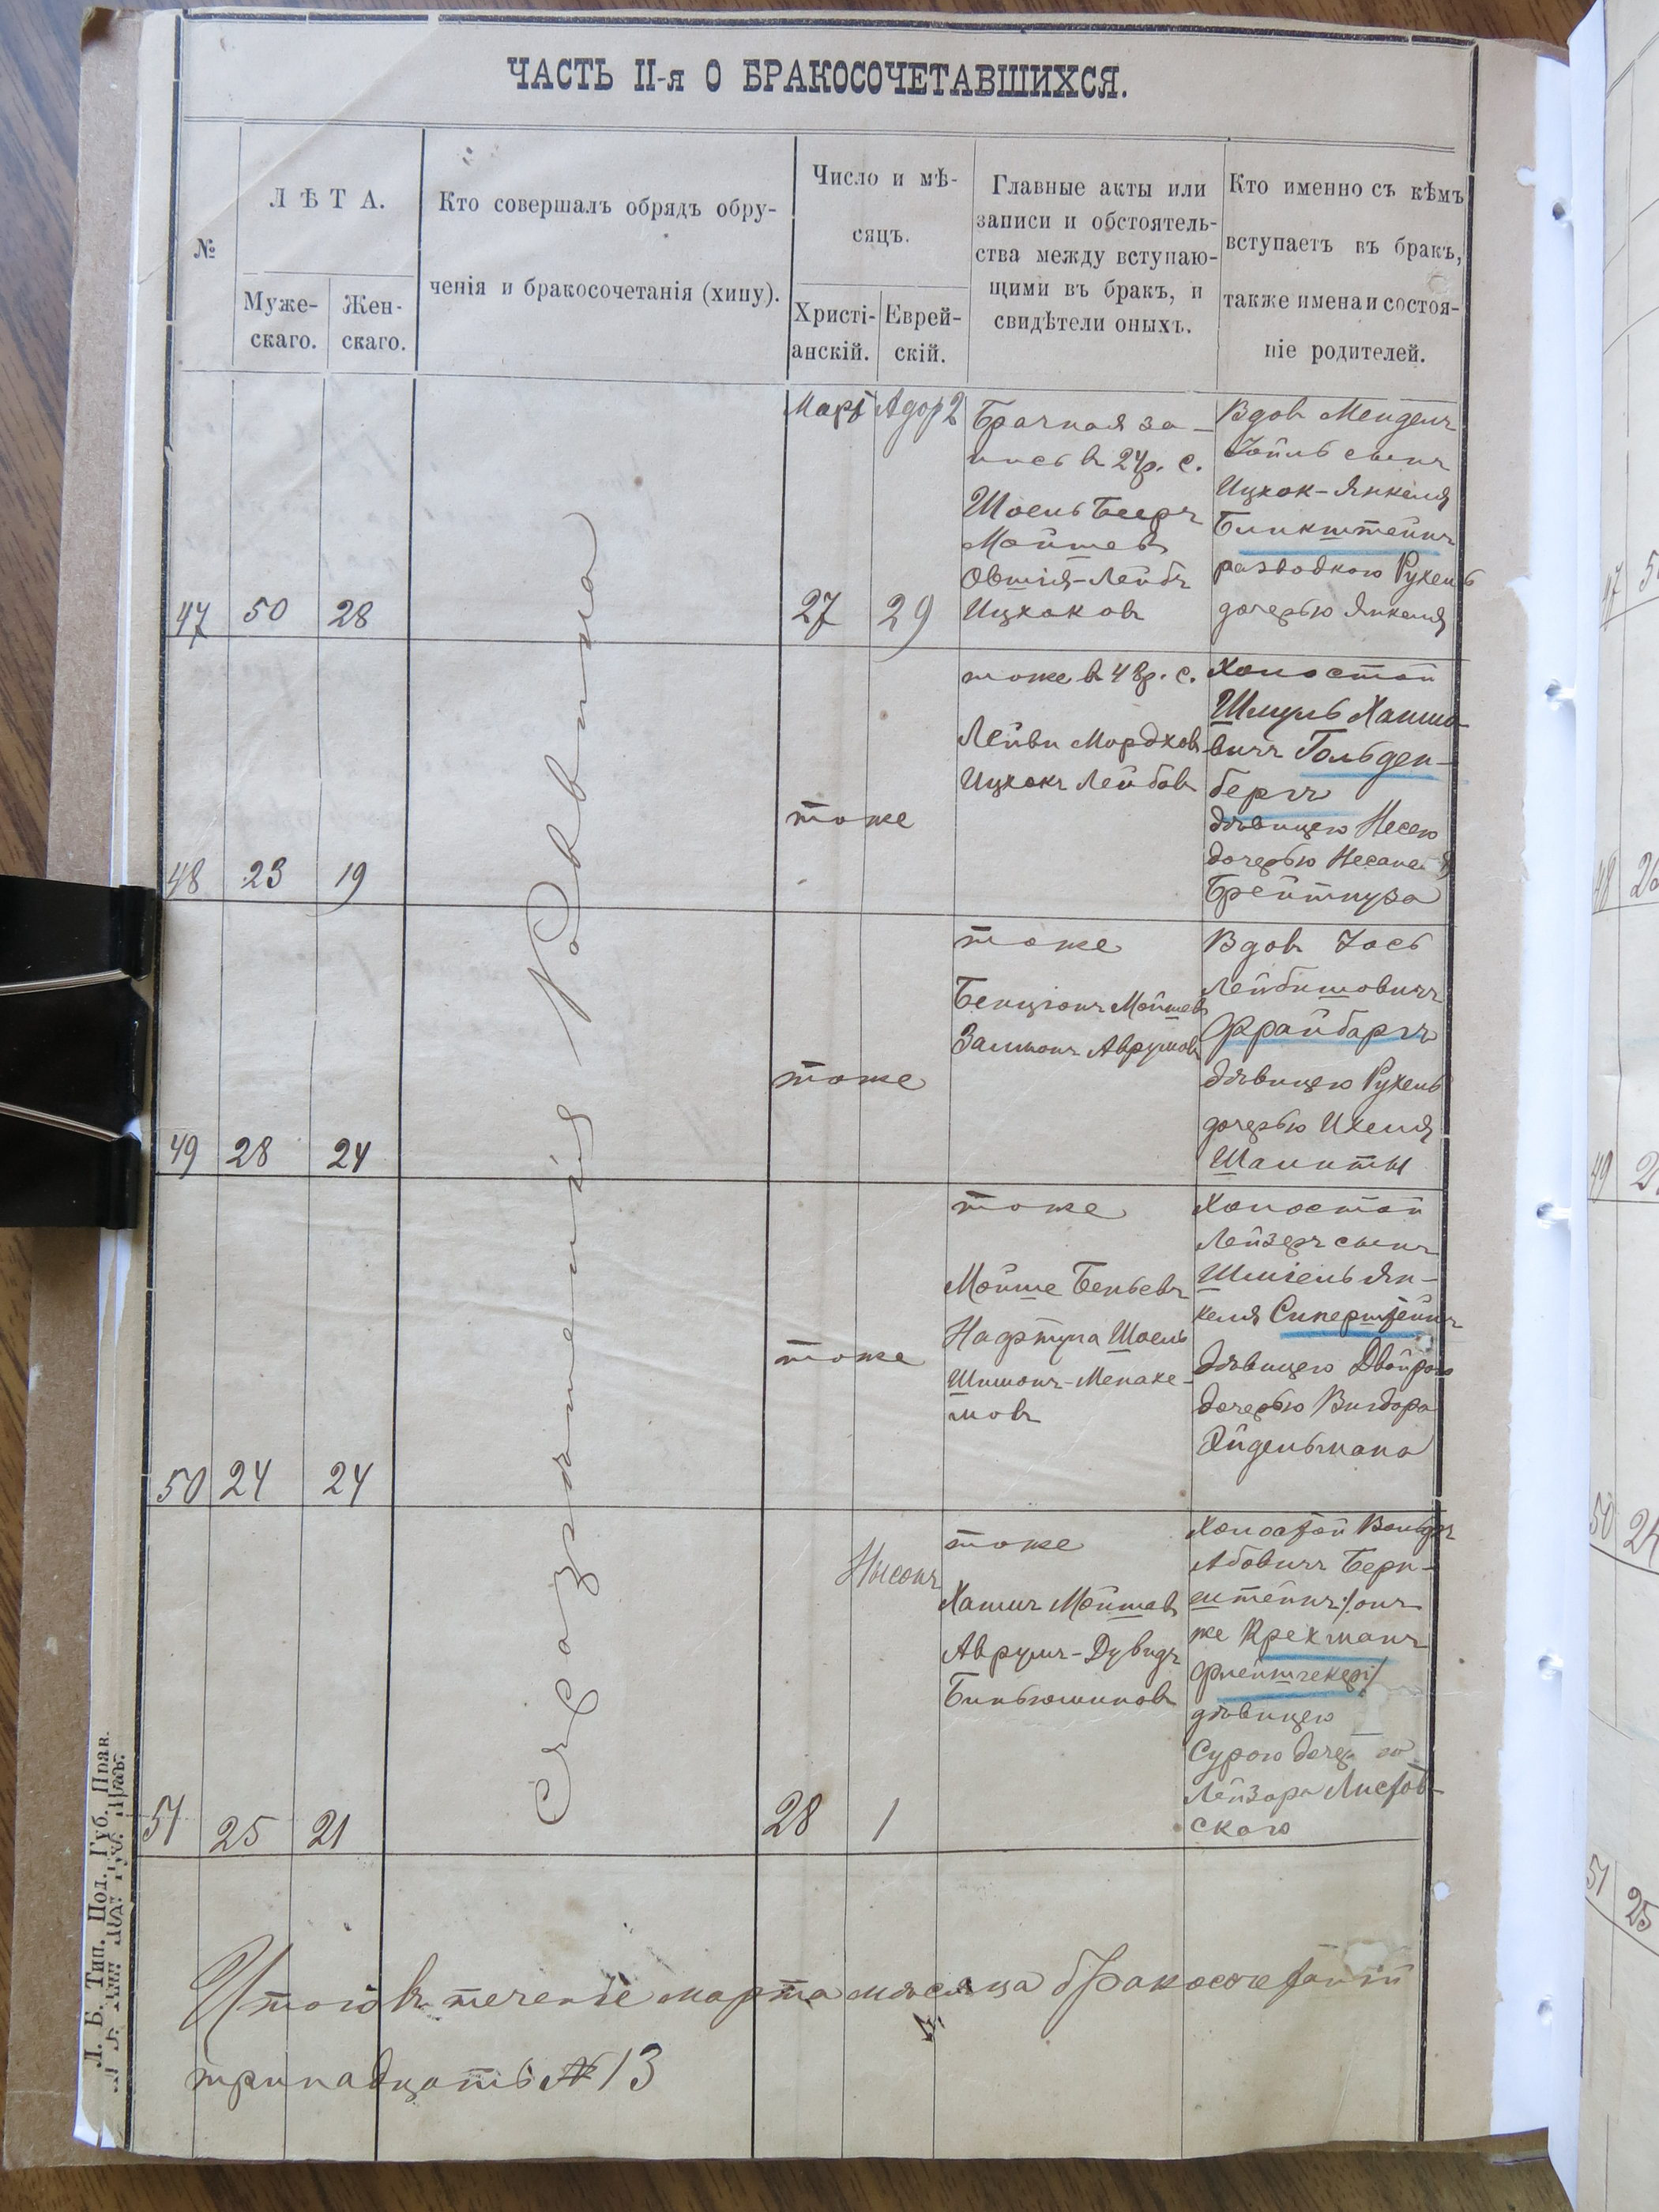 ЧАСТЬ II-я О БРАКОСОЧЕТАВШИХСЯ.
№
ЛѢТА.
Муже-
скаго.
Жен-
скаго.
Кто совершалъ обрядъ обру-
ченія и бракосочетанія (хипу).
Число и мѣ-
сяцъ.
Христі-
анскій.
Еврей-
скій.
Главные акты или
записи и обстоятель-
ства между вступаю-
щими въ бракъ, и
свидѣтели оныхъ.
Кто именно съ кѣмъ
вступаетъ въ бракъ,
также имена и состоя-
ніе родителей.
47
50
28
Мартъ
27
Адоръ 2
29
Брачная за-
пись въ 24 р. с.
Шоель Беръ
Мойшевъ
Овшія-Лейбъ
Ицхоковъ
Вдов Мендель
Іойль сынъ
Ицхок-Янкеля
Бликштейнъ
разводкою Рухель
дочерью Янкеля
48
23
19
тоже
тоже в 48 р. с.
Лейви Мордховъ
Ицхокъ Лейбовъ
Холостой
Шмуль Хаимо-
вичъ Гольден-
бергъ
дѣвицею Несею
дочерью
Брейтнуза
Съ Разрѣшенія Раввина
49
28
24
тоже
тоже
Бенціонъ Мойшевъ
Залмонъ Аврумовъ
Вдов Іось
Лейбишовичъ
Фрайбаргъ
дѣвицею Рухель
дочерью Ихеля
Шалиты
50
24
24
тоже
тоже
Мойше Беньевъ
Нафтула Шоель
Шимонъ-Менахе-
мовъ
Холостой
Лейзеръ сынъ
Шміель Ян-
келя Сиперштейнъ
дѣвицею Двойрою
дочерью Вигдора
Эйдельмана
51
25
21
28
Нысонъ
1
тоже
Хаимъ Мойшевъ
Аврумъ-Дувидъ
Биньюминовъ
Холостой Вольфъ
Абовичъ Берн-
штейнъ /онъ
же Крехманъ
Флейшгекеръ/
дѣвицею
Сурою дочерью
Лейзора Листов-
скаго
Итого въ теченіе марта мѣсяца бракосочетаній
тринадцать № 13
Л. Б. Тип. Под. Губ. Прав.